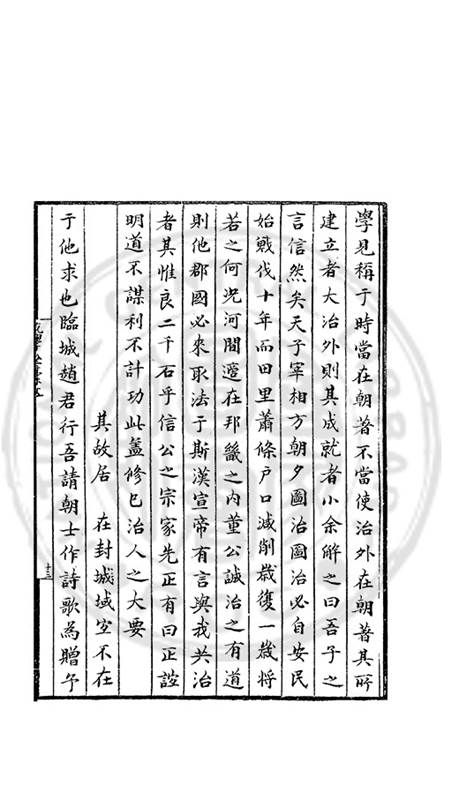 學見稱于時當在朝著不當使治外在朝著其所
建立者大治外則其成就者小余解之曰吾子之
言信然矣天子宰相方朝夕圖治圖治必自安民
始戰伐十年而田里蕭條戶口減削歲復一歲將
若之何况河間邇在邦畿之内董公誠治之有道
則他郡國必來取法于斯漢宣帝有言與我共治
者其惟良二千石乎信公之宗家先正有曰正誼
明道不謀利不計功此蓋修已治人之大要
其故居 在封城域空不在
于他求也臨城趙君行吾請朝士作詩歌為贈今
十三